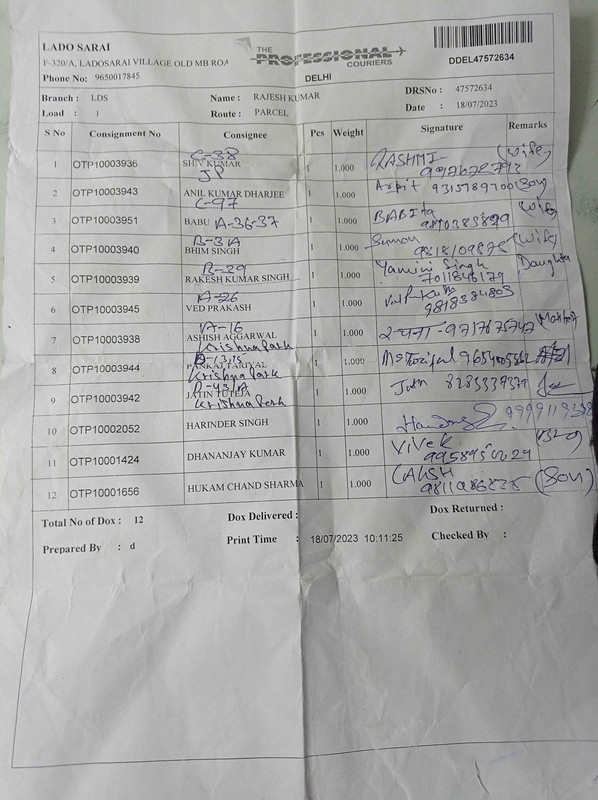 LADO SARAI
F-320/A, LADOSARAI VILLAGE OLD MB ROA
Phone No: 9650017845
THE PROFESSIONAL COURIERS
DELHI
DDEL47572634
Branch : LDS Name : RAJESH KUMAR DRSNo : 47572634
Load : 1 Route : PARCEL Date : 18/07/2023
S No Consignment No Consignee Pcs Weight Signature Remarks
C-38
1 OTP10003936 SHIV KUMAR 1 1.000 RASHMI (wife)
JP
2 OTP10003943 ANIL KUMAR DHARJEE 1 1.000 Arpit 9315789700 (Son)
C-97
3 OTP10003951 BABU A-36-37 1 1.000 BABITA wife
B-31A
4 OTP10003940 BHIM SINGH 1 1.000 Suman (wife)
B-29
5 OTP10003939 RAKESH KUMAR SINGH 1 1.000 Yamini Singh
7011846179
A-26
6 OTP10003945 VED PRAKASH 1 1.000
9818384803
VA-16
7 OTP10003938 ASHISH AGGARWAL 1 1.000
Krishna Park
8 OTP10003944 PANKAJ TARIYAL 1 1.000
Krishna Park
D-431A
9 OTP10003942 JATIN TUTEJA 1 1.000
Krishna Park
10 OTP10002052 HARINDER SINGH 1 1.000
11 OTP10001424 DHANANJAY KUMAR 1 1.000 Vivek
12 OTP10001656 HUKAM CHAND SHARMA 1 1.000 (Son)
Total No of Dox : 12 Dox Delivered : Dox Returned :
Prepared By : d Print Time : 18/07/2023 10:11:25 Checked By :